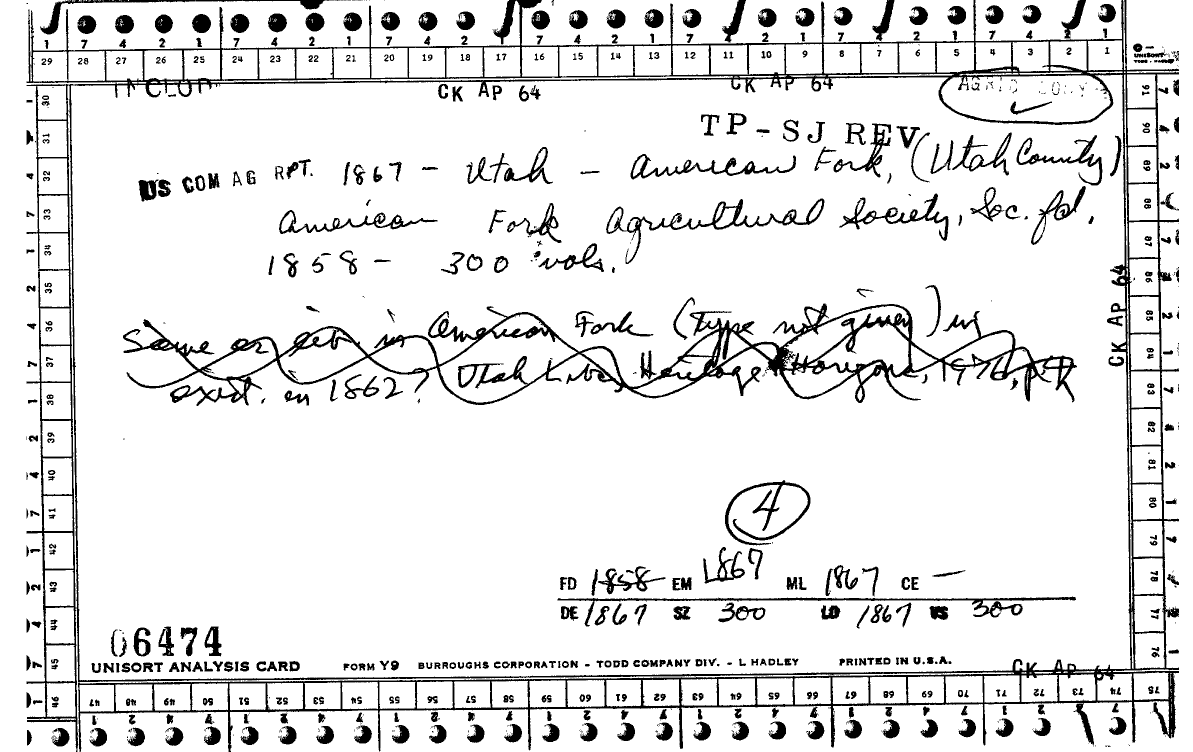 7 4 2 1 7 4 2 1 7 4 2 1 7 4 2 1 7 4 2 1 7 4 2 1 7 4 2 1
29 28 27 26 25 24 23 22 21 20 19 18 17 16 15 14 13 12 11 10 9 8 7 6 5 4 3 2 1
CK AP 64 CK AP 64
TP-SJ REV
US COM AG RPT. 1867 - Utah - American Fork, (Utah County)
American Fork Agricultural Society, Soc. fd.
1858 - 300 vols.
CK AP 64
Same as lib. in American Fork (type not given) in
exist. in 1862? Utah Libs, Heritage & Horizons, 1976, p.
4
FD 1858 EM 1867 ML 1867 CE —
DE 1867 SZ 300 LD 1867 VS 300
06474
UNISORT ANALYSIS CARD FORM Y9 BURROUGHS CORPORATION - TODD COMPANY DIV. - L HADLEY PRINTED IN U.S.A.
CK AP 64
47 48 49 50 51 52 53 54 55 56 57 58 59 60 61 62 63 64 65 66 67 68 69 70 71 72 73 74 75